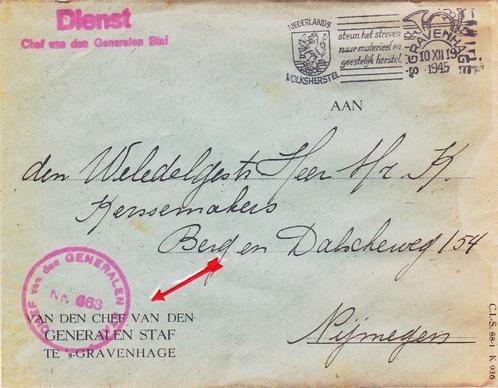 Dienst
Chef van den Generalen Staf
NEDERLANDS
VOLKSHERSTEL
steun het streven
naar materieel en
geestelijk herstel.
'S-GRAVENHAGE
10 XII 19
1945
AAN
den Weledelgestr Heer Mr. K.
Kerssemakers
Berg en Dalscheweg 154
Nijmegen
CHEF van den GENERALEN STAF
Nr. 663
VAN DEN CHEF VAN DEN
GENERALEN STAF
TE 's-GRAVENHAGE
C.I.-S. 88-1 K 936